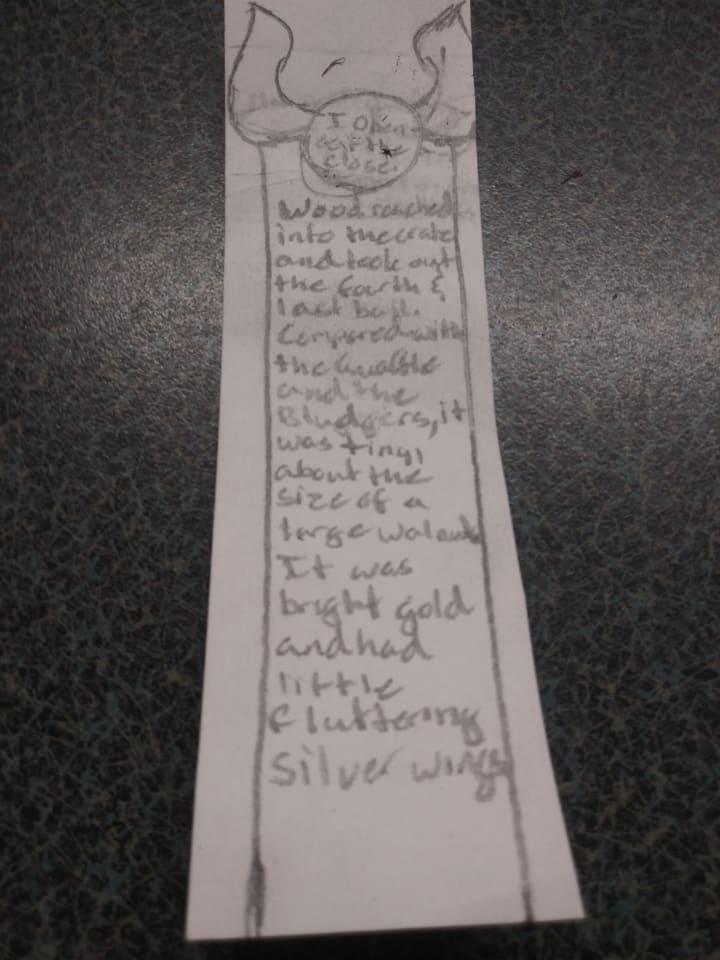 I Open
at the
close.
Wood reached
into the crate
and took out
the forth &
last ball.
Compared with
the Quaffle
and the
Bludgers, it
was tiny,
about the
size of a
large walnut.
It was
bright gold
and had
little
fluttering
silver wings